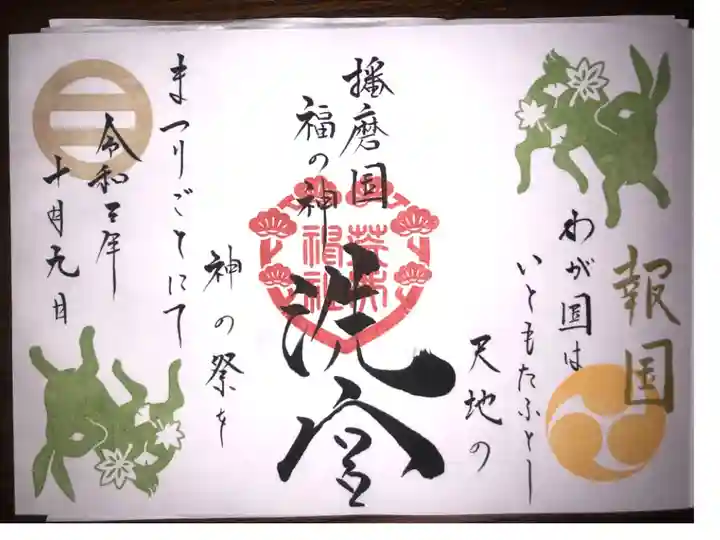 報国
わが国は
いともたふとし
天地の
播磨国
福の神
洗宮
神の祭を
まつりごとにて
令和三年
十月九日